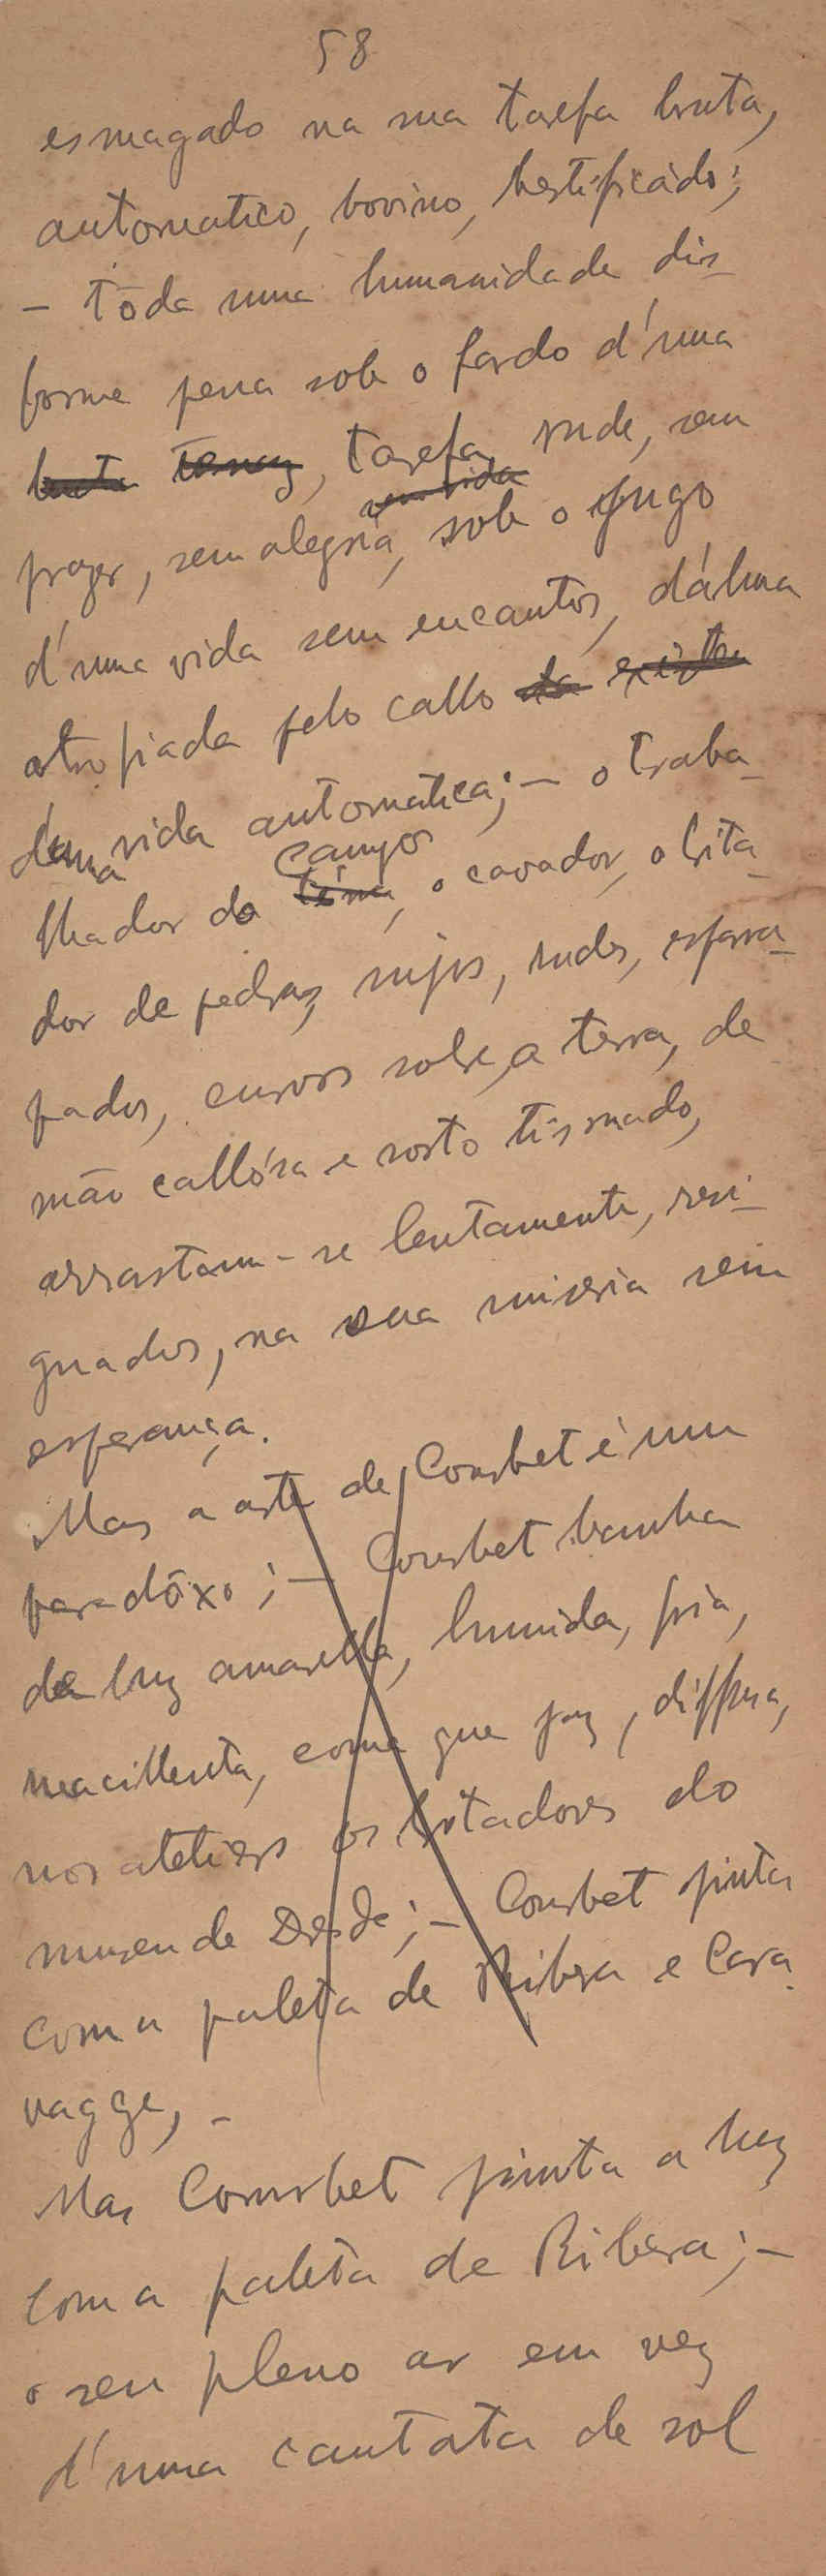 58
esmagado na sua tarefa bruta,
automatico, bovino, bestificado;
– tōda uma humanidade dis-
forme pena sob o fardo d'uma
bruta tenaz, tarefa rude, sem
sem vida
prazer, sem alegria, sob o jugo
d'uma vida sem encantos, d'álma
atrofiada pelo callo da
d'uma vida automatica; – o traba-
campo
lhador do , o cavador, o brita-
dor de pedras, sujos, rudes, esfarra-
pados, curvos sobre a terra, de
mão callósa e rosto tisnado,
arrastam-se lentamente, resi-
gnados, na sua miseria sem
esperança.
Mas a arte de Courbet é um
paradōxo; – Courbet banha
de luz amarella, humida, fria,
macillenta, como que faz, diffusa,
nos ateliers os britadores do
museu de Dresde; – Courbet pinta
com a paleta de Ribera e Cara-
vagge, –
Mas Courbet pinta a luz
com a paleta de Ribera; –
o seu pleno ar em vez
d'uma cantata de sol